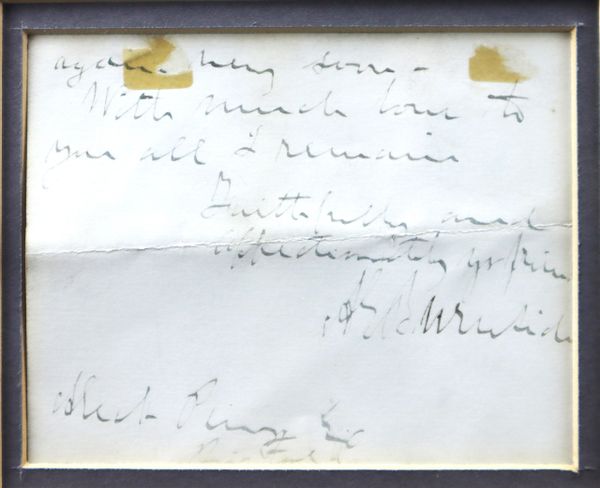 again very soon -
With much love to
you all I remain
Faithfully and
affectionately yr frien
A Burnsid
Perry Esq